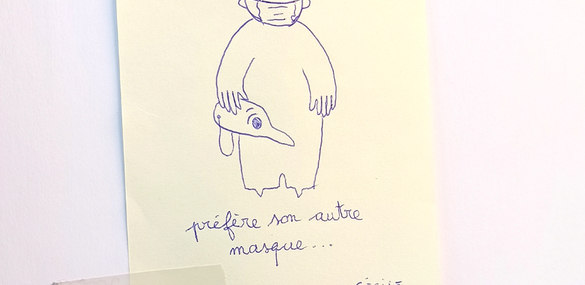 préfère son autre
masque...